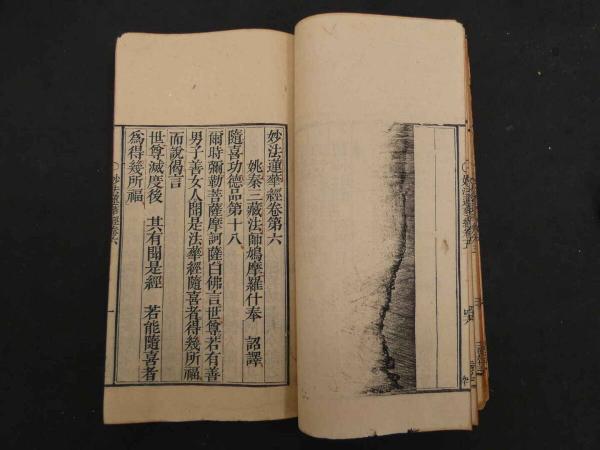 妙法蓮華經卷第六
姚秦三藏法師鳩摩羅什奉 詔譯
隨喜功德品第十八
爾時彌勒菩薩摩訶薩白佛言世尊若有善
男子善女人聞是法華經隨喜者得幾所福
而說偈言
世尊滅度後 其有聞是經 若能隨喜者
爲得幾所福
妙法蓮華經卷六
一
妙法蓮華經卷五